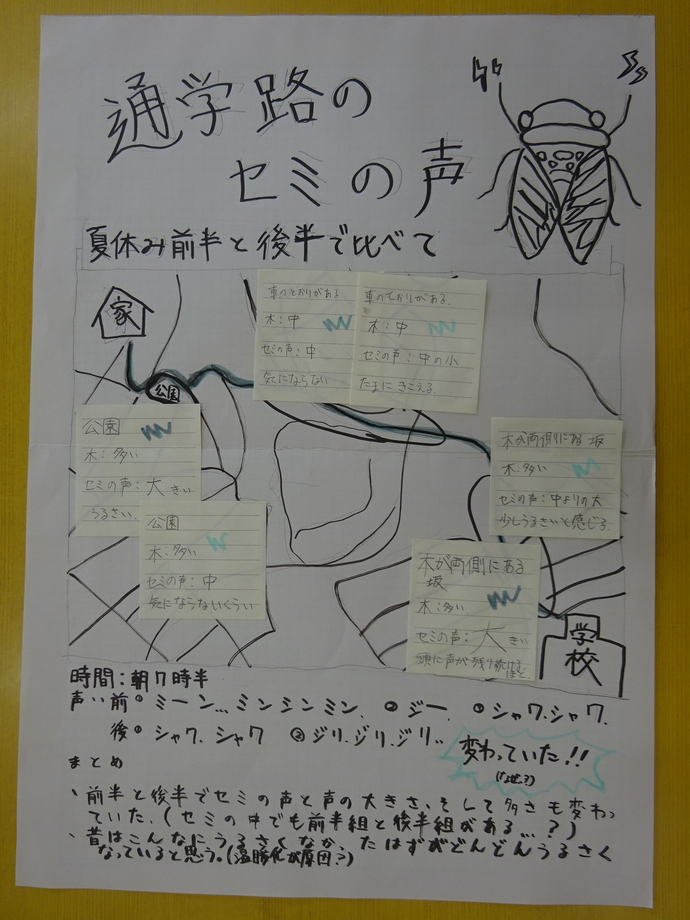 通学路の
セミの声
夏休み前半と後半で比べて
家
公園
車のとおりがある
木:中
セミの声:中
気にならない
車のとおりがある。
木:中
セミの声:中の小
たまにきこえる。
公園
木:多い
セミの声:大きい
うるさい。
公園
木:多い
セミの声:中
気にならないくらい
木が両側にある坂
木:多い
セミの声:中よりの大
少しうるさいと感じる。
木が両側にある
坂
木:多い
セミの声:大きい
頭に声が残り続ける
ほど。
学校
時間:朝7時半
声い前① ミーン... ミンミンミン. ②ジー. ③シャワ.シャワ.
後① シャワ. シャワ ②ジリ.ジリ.ジリ..
変わっていた!!
まとめ
、前半と後半でセミの声と声の大きさ、そして多さも変わっ
ていた.(セミの中でも前半組と後半組がある...?)
、昔はこんなにうるさくなかったはずがどんどんうるさく
なっていると思う。(温暖化が原因?)